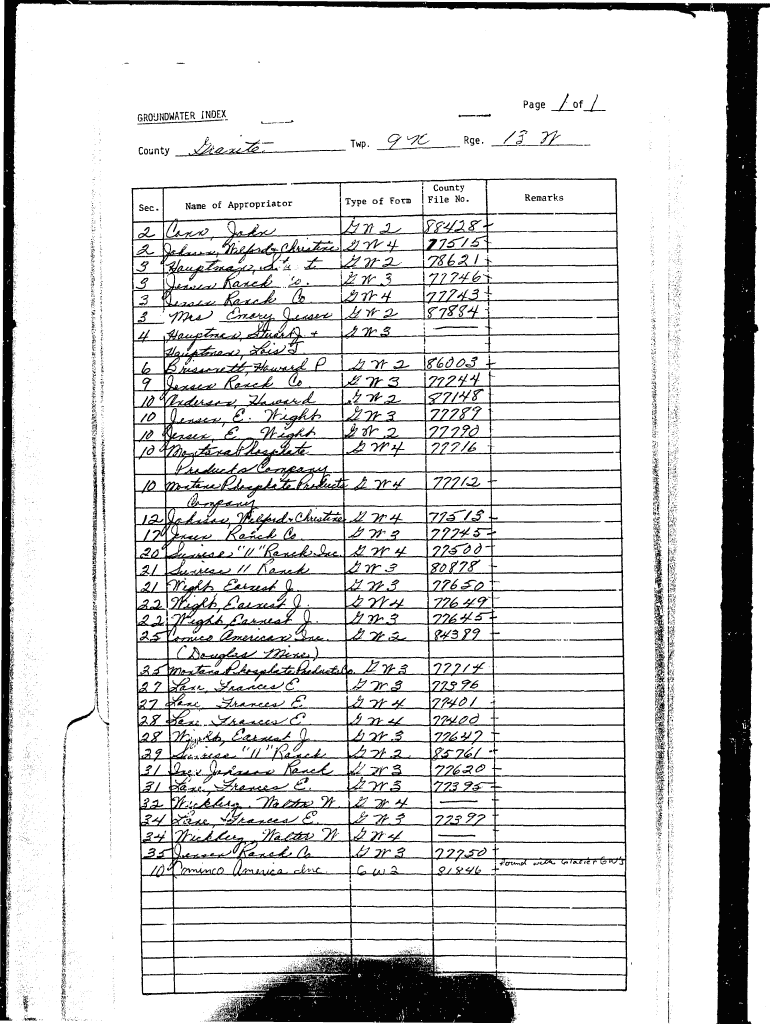 Page 1 of 1
GROUNDWATER INDEX
County Granite Twp. 9N Rge. 13 W
Sec. Name of Appropriator Type of Form County File No. Remarks
2 Conn, John GW 2 88428
2 Johnson, Wilford & Christine GW 4 77515
3 Hauptman, GW 2 78621
3 Jensen Ranch Co. GW 3 77746
3 Jensen Ranch Co GW 4 77743
3 Mrs Emory Jensen GW 2 87884
4 Hauptman, Stuart J. + GW 3 —
Hauptman, Lois T
6 Howard P GW 2 86003
9 Jensen Ranch Co. GW 3 77744
10 Anderson, Howard GW 2 87148
10 Jensen, E. Wight GW 3 77789
10 Jensen, E. Wight GW 2 77790
10 Montana Phosphate GW 4 77716
Products Company
10 Montana Phosphate Products GW 4 77712
Company
12 Johnson, Wilford & Christine GW 4 77513
17 Jensen Ranch Co GW 3 77745
20 Sunrise "11" Ranch Inc. GW 4 77500
21 Sunrise 11 Ranch GW 3 80878
21 Wight, Earnest J. GW 3 77650
22 Wight, Earnest J. GW 4 77649
22 Wight, Earnest J. GW 3 77645
25 Comico American Inc. GW 2 84389
(Douglas Mine)
25 Montana Phosphate Products Co. GW 3 77714
27 Lane, Frances E GW 3 77396
27 Lane, Frances E. GW 4 77401
28 Lane, Frances E. GW 4 77400
28 Wight, Earnest J GW 3 77647
29 Sunrise "11" Ranch GW 2 85761
31 Johnson Ranch GW 3 77620
31 Lane, Frances E. GW 3 77395
32 Wickberg, Walter W. GW 4 —
34 Lane, Frances E. GW 3 77397
34 Wickberg, Walter W GW 4 —
35 Jensen Ranch Co GW 3 77750
10 Cominco America Inc. GW2 81846 found with Glacier GW's